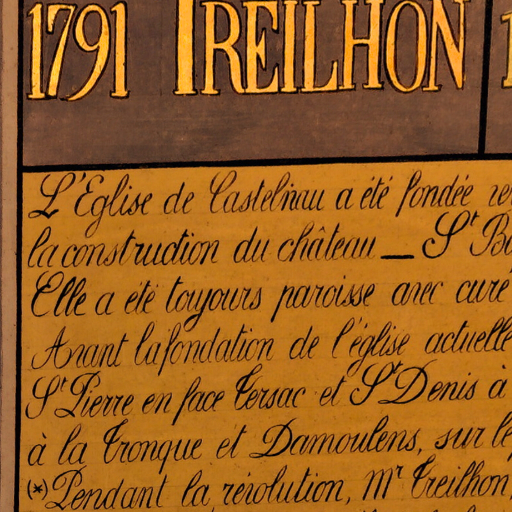 1791 TREILHON
L'Église de Castelnau a été fondée
la construction du château _ St
Elle a été toujours paroisse avec curé
Avant la fondation de l'église actuelle
St Pierre en face Tersac et St Denis à
à la Tronque et Damoulens, sur le
(*) Pendant la révolution, Mr Treilhon,